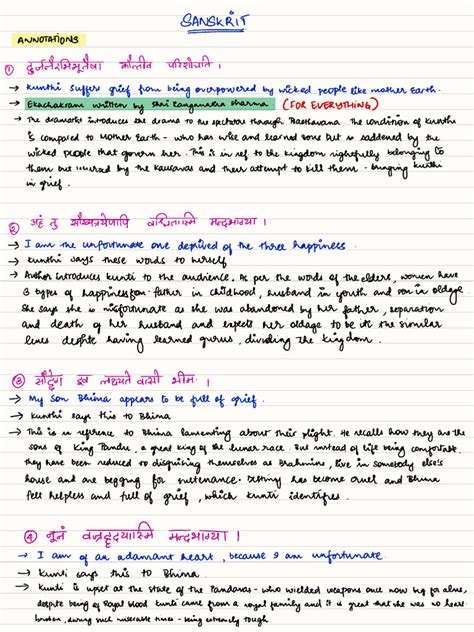 SANSKRIT
ANNOTATIONS
① दुर्जनैरभिभूतेषा कौन्तीव परिशोचति ।
→ Kunthi suffers grief from being overpowered by wicked people like mother Earth.
→ Ekachakram written by Shri Ranganatha Sharma (FOR EVERYTHING)
→ The dramatist introduces the drama to the spectators through Prasthavana. The condition of Kunthi
is compared to Mother Earth - who has wise and learned sons but is saddened by the
wicked people that govern her. This is in ref to the kingdom rightfully belonging to
them but by the Kauravas and their attempt to kill them - bringing kunthi
in grief.
② अहं तु सौख्यत्रयेणापि वञ्चितास्मि मन्दभाग्या ।
→ I am the unfortunate one deprived of the three happiness.
→ Kunthi says these words to herself
→ Author introduces Kunti to the audience. As per the words of the elders, women have
3 types of happiness from - father in childhood, husband in youth and son in oldage
She says she is misfortunate as she was abandoned by her father, separation
and death of her husband and expects her oldage to be in the similar
lines despite having learned gurus, dividing the kingdom.
③ इव लक्ष्यते वत्सो भीमः ।
→ My son Bhima appears to be full of grief.
→ Kunthi says this to Bhima
→ This is in reference to Bhima lamenting about their plight. He recalls how they are the
sons of King Pandu, a great king of the lunar race. But instead of life being comfortable,
they have been reduced to disguising themselves as Brahmins, live in somebody else's
house and are begging for sustenance. Destiny has become cruel and Bhima
felt helpless and full of grief, which Kunti identifies.
④ नूनं वज्रहृदयास्मि मन्दभाग्या ।
→ I am of an adamant heart, because I am unfortunate.
→ Kunti says this to Bhima
→ Kunti is upset at the state of the Pandavas - who wielded weapons once now beg for alms,
despite being of Royal blood Kunti came from a royal family and it is great that she was no heart
broken, during such miserable times - being extremely tough.